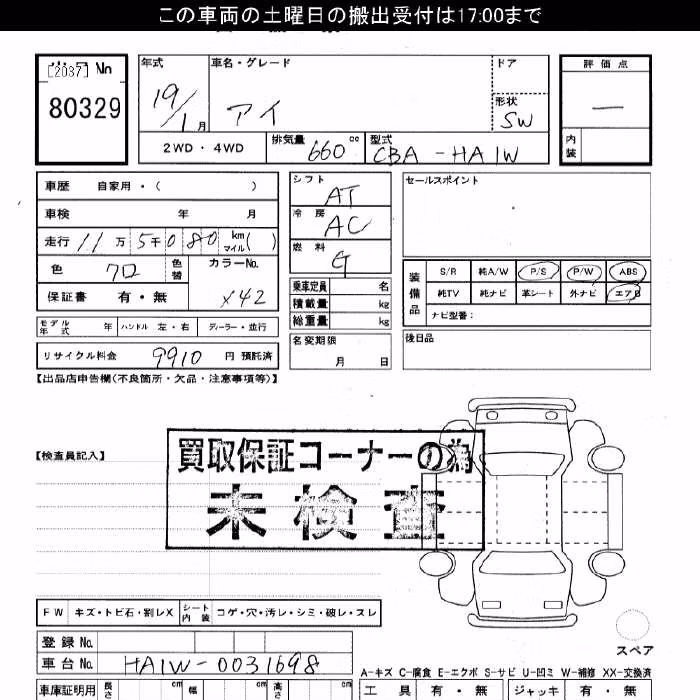 この車両の土曜日の搬出受付は17:00まで
[2037] No
80329
年式 車名・グレード ドア 評価点
19/1月 アイ 形状 SW —
2WD・4WD 排気量 660 cc 型式 CBA-HA1W 内装
車歴 自家用・( )
車検 年 月
走行 11万5千080 km マイル( )
色 クロ 色替 カラーNo. X42
保証書 有・無
モデル年式 年 ハンドル 左・右 ディーラー・並行
リサイクル料金 9910 円 預託済
シフト AT
冷房 AC
燃料 G
乗車定員 名
積載量 kg
総重量 kg
名変期限 月 日
セールスポイント
装備品 S/R 純A/W P/S P/W ABS
純TV 純ナビ 革シート 外ナビ エアB
ナビ型番:
後日品
【出品店申告欄(不良箇所・欠品・注意事項等)】
【検査員記入】
買取保証コーナーの為
未検査
FW キズ・トビ石・割レX シート内装 コゲ・穴・汚レ・シミ・破レ・スレ
登録No.
車台No. HA1W-0031698
スペア
A-キズ C-腐食 E-エクボ S-サビ U-凹ミ W-補修 XX-交換済
車庫証明用 長さ cm 幅 cm 高さ cm 工具 有・無 ジャッキ 有・無